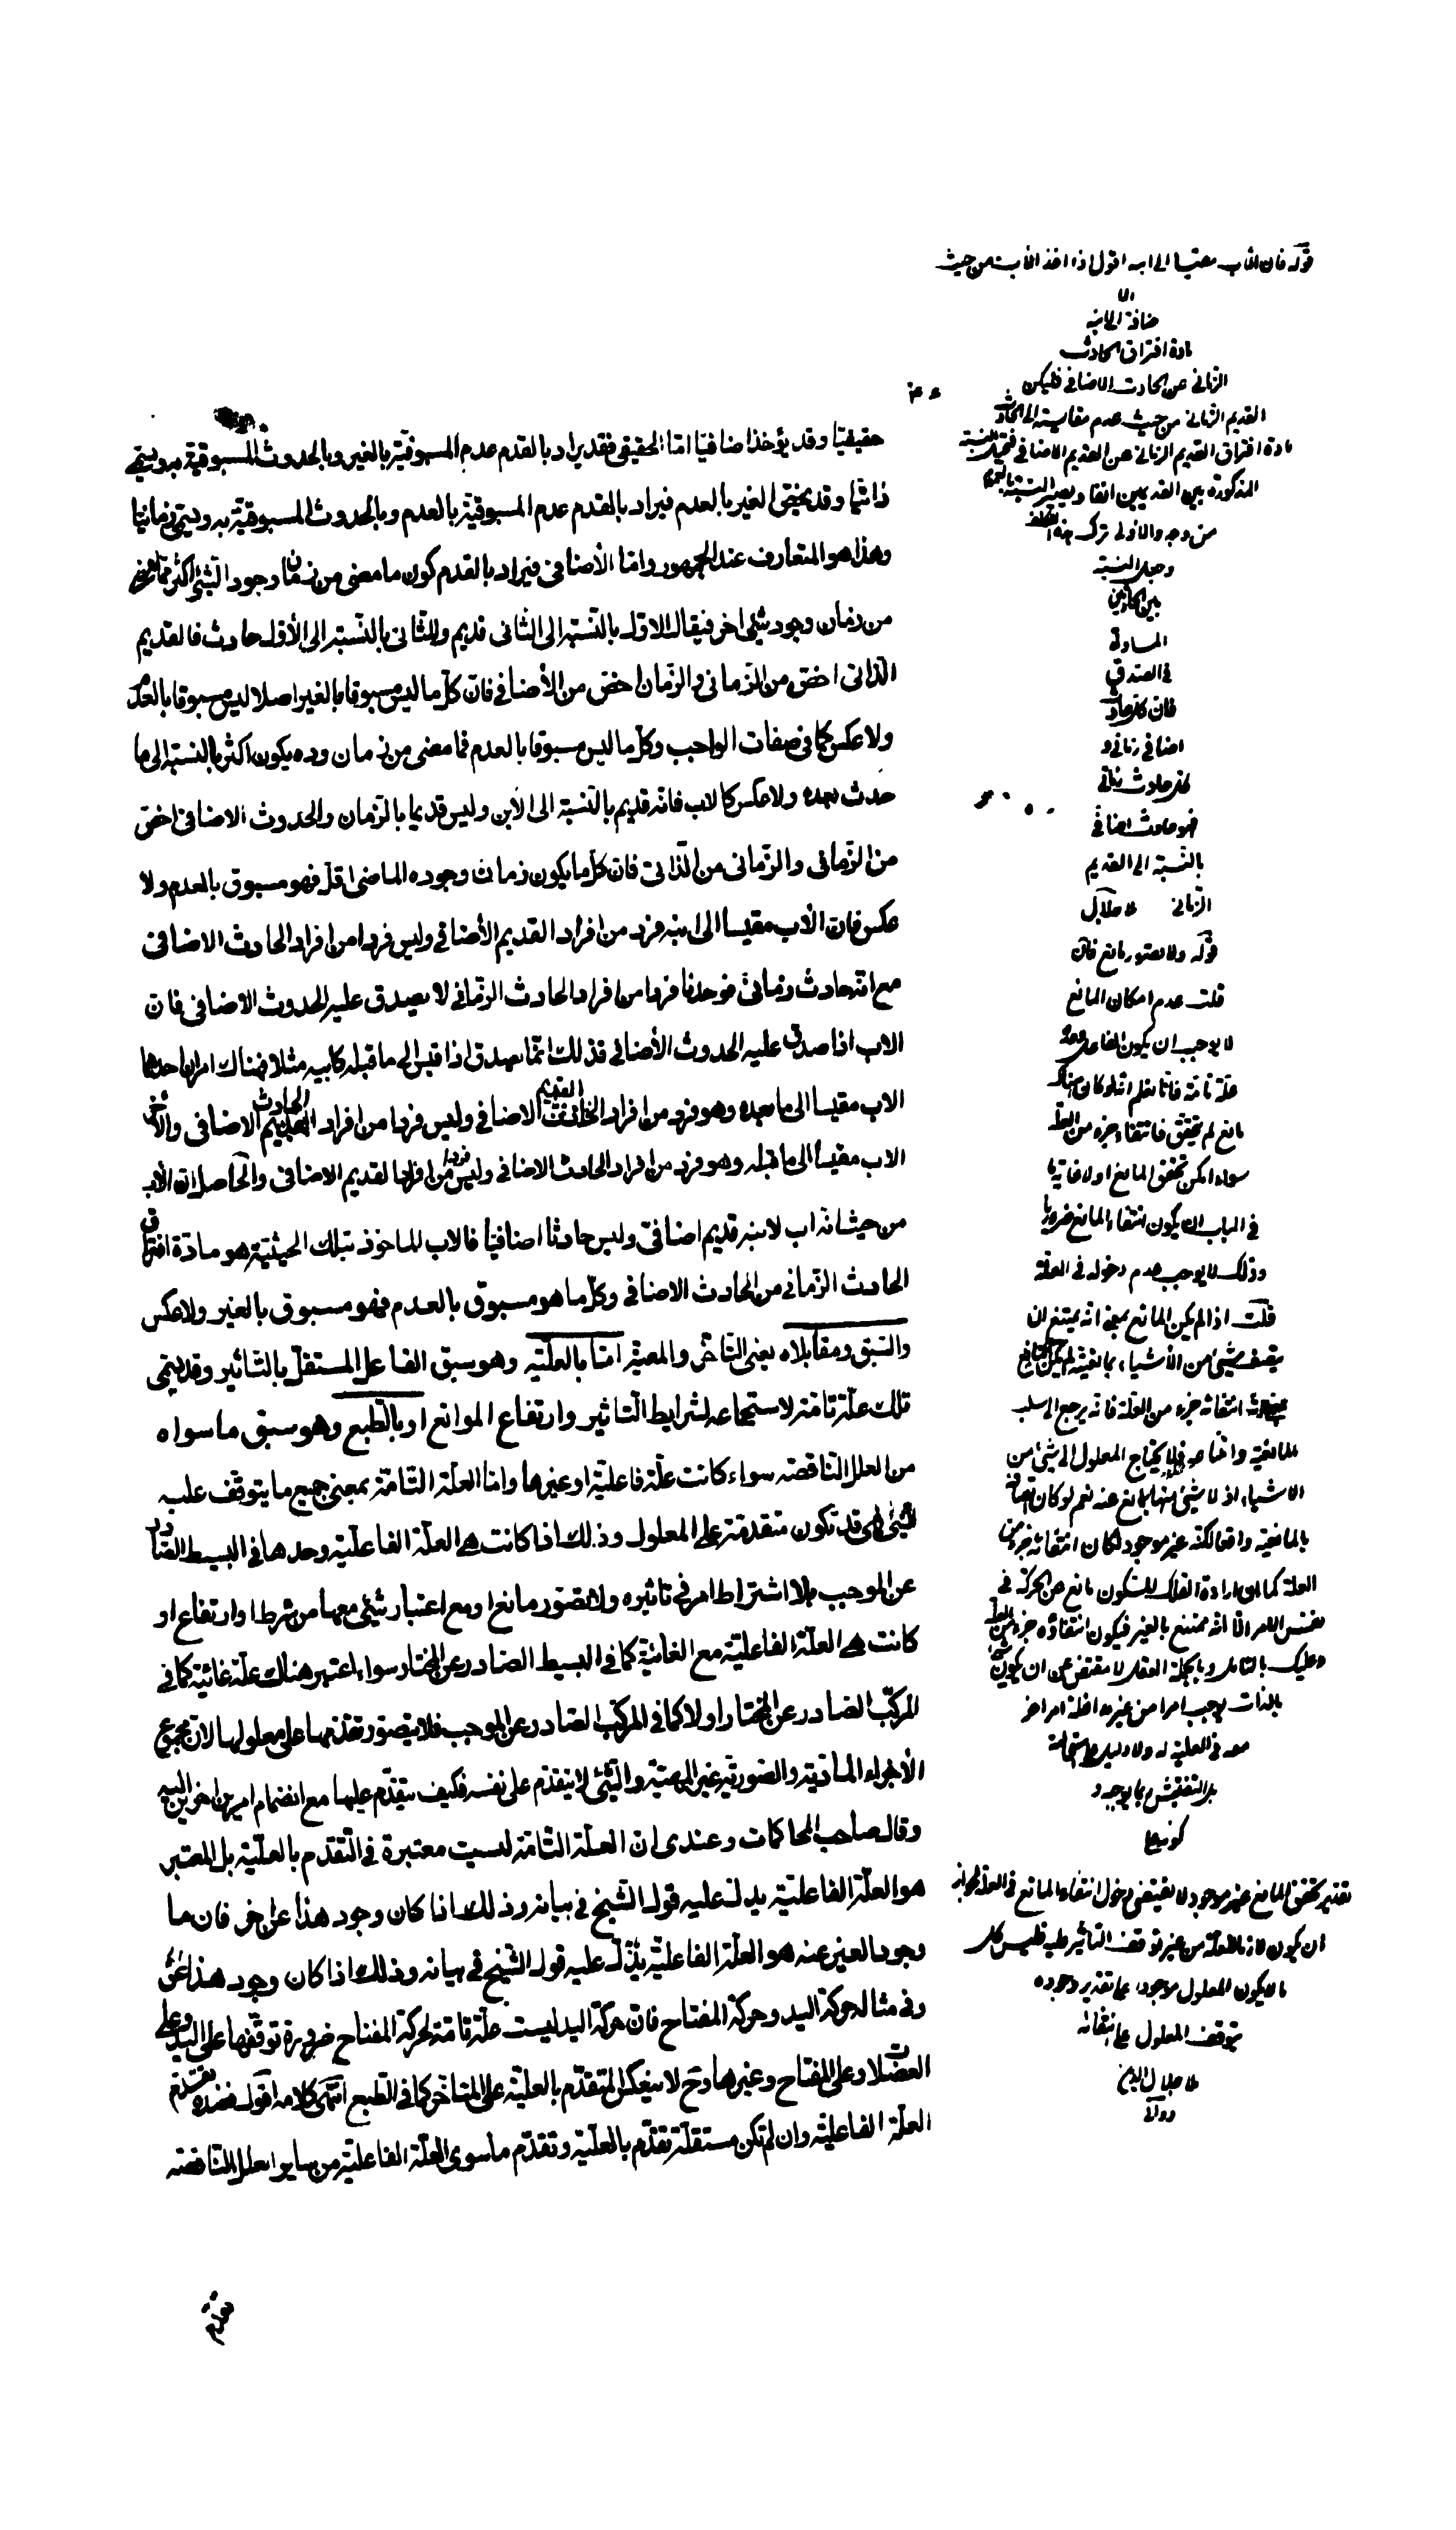 حقيقيّا وقد يؤخذ اضافيّا امّا الحقيقى فقد يراد بالقدم عدم المسبوقيّة بالغير وبالحدوث المسبوقية به ويسمّى
ذاتيّا وقد يخصّ الغير بالعدم فيراد بالقدم عدم المسبوقيّة بالعدم وبالحدوث المسبوقيّة به ويسمّى زمانيّا
وهذا هو المتعارف عند الجمهور وامّا الأضافى فيراد بالقدم كون ما مضى من زمان وجود الشّئ اكثر ممّا مضى
من زمان وجود شئ اخر فيقال للاوّل بالنّسبة الى الثانى قديم وللثانى بالنّسبة الى الأوّل حادث فالقديم
الذّاتى اخصّ من الزّمانى والزّمانى اخصّ من الأضافى فانّ كلّ ما ليس مسبوقا بالغير اصلا ليس مسبوقا بالعدم
ولا عكس كما فى صفات الواجب وكلّ ما ليس مسبوقا بالعدم فما مضى من زمان وجوده يكون اكثر بالنسبة الى ما
حدث بعده ولا عكس كالاب فانّه قديم بالنّسبة الى الأبن وليس قديما بالزّمان والحدوث الاضافى اخصّ
من الزّمانى والزّمانى من الذّاتى فان كلّ ما يكون زمان وجوده الماضى اقلّ فهو مسبوق بالعدم ولا
عكس فان الأب مقيسا الى ابنه فرد من افراد القديم الأضافى وليس فردا من افراد الحادث الاضافى
مع انّه حادث زمانى فوجدنا فردا من افراد الحادث الزمّانى لا يصدق عليه الحدوث الاضافى فان
الاب اذا صدق عليه الحدوث الأضافى فذلك انّما يصدق اذا قيس الى ما قبله كابيه مثلا فهناك امران احدهما
الاب مقيسا الى ما بعده وهو فرد من افراد القديم الاضافى وليس فردا من افراد الحادث الاضافى والاخر
الاب مقيسا الى ما قبله وهو فرد من افراد الحادث الاضافى وليس فردا من افراد القديم الاضافى والحاصل ان الأب
من حيث انه اب لابنه قديم اضافىّ وليس حادثا اضافيّا فالاب الماخوذ بتلك الحيثيّة هو مادّة افتراق
الحادث الزّمانى من الحادث الاضافى وكلّ ما هو مسبوق بالعدم فهو مسبوق بالغير ولا عكس
والسّبق ومقابلاه يعنى التّاخّر والمعيّة امّا بالعلّيّة وهو سبق الفاعل المستقلّ بالتّاثير وقد يسمّى
تلك علّة تامّة لاستجماعه لشرايط التّاثير وارتفاع الموانع او بالطّبع وهو سبق ما سواه
من العلل النّاقصة سواء كانت علّة فاعليّة او غيرها وامّا العلّة التّامّة بمعنى جميع ما يتوقّف عليه
الشئ فهى قد تكون متقدمة على المعلول وذلك اذا كانت هى العلّة الفاعليّة وحدها فى البسيط الصّادر
عن الموجب بلا اشتراط امر فى تاثيره ولا تصوّر مانع او مع اعتبار شئ معها من شرط او ارتفاع او
كانت هى العلّة الفاعليّة مع الغائيّة كما فى البسيط الصّادر عن المختار سواء اعتبر هناك علّة غائيّة كما فى
المركّب الصّادر عن المختار او لا كما فى المركّب الصّادر عن الموجب فلا يتصوّر تقدّمها على معلولها لانّ مجموع
الأجزاء المادّيّة والصّوريّة عين المهيّة والشّئ لا يتقدّم على نفسه فكيف يتقدّم عليها مع انضمام امرين اخرين اليه
وقال صاحب المحاكمات وعندى ان العلّة التّامّة ليست معتبرة فى التّقدّم بالعلّيّة بل المعتبر
هو العلّة الفاعليّة يدلّ عليه قول الشّيخ فى بيانه وذلك اذا كان وجود هذا عن اخر فان ما
وجود الغير عنه هو العلّة الفاعليّة يدلّ عليه قول الشّيخ فى بيانه وذلك اذا كان وجود هذا عن
وفى مثاله حركة اليد وحركة المفتاح فان حركة اليد ليست علّة تامّة لحركة المفتاح ضرورة توقّفها على اليد وعلى
العضلات وعلى المفتاح وغيرها وح لا ينعكس المتقدّم بالعلّية على المتاخّر كما فى الطّبع انتهى كلامه اقول فعنده تقدّم
العلّة الفاعليّة وان لم تكن مستقلّة تقدّم بالعلّيّة وتقدّم ما سوى العلّة الفاعليّة من ساير العلل النّاقصة
قوله فان الاب مقيسا الى ابنه اقول اذا اخذ الاب من حيث
الا
ضافة الى ابنه
مادة افتراق الحادث
الزمانى عن الحادث الاضافى فليكن
القديم الزمانى من حيث عدم مقايسته الى الحادث
مادة افتراق القديم الزمانى عن القديم الاضافى
المذكورة بين القديمين ايضا ويصير النسبة
من وجه والاولى ترك هذه
وجعل النسبة
بين الحادثين
المساواة
فى الصدق
فان كل حادث
اضافى زمانى و
كل حادث زمانى
فهو حادث اضافى
بالنسبة الى القديم
الزمانى ملا جلال
قوله ولا تصور مانع فان
قلت عدم امكان المانع
لا يوجب ان يكون الفاعل وحده
علة تامة فانا نعلم انه لو كان هناك
مانع لم يتحقق فانتفاءه جزء من العلة
سواء امكن تحقق المانع او لا غاية ما
فى الباب ان يكون انتفاء المانع ضروريا
وذلك لا يوجب عدم دخوله فى العلة
قلت اذا لم يكن المانع بمعنى انه يمتنع ان
يتصف شئ من الأشياء بمانعيته لم يكن
انتفائه جزء من العلة فانه يرجع الى سلب
المانعية فلا يحتاج المعلول الى شئ من
الاشياء اذ لا شئ منها بمانع عنه نعم لو كان
بالمانعية واقعا لكنه غير موجود لكان انتفائه جزء من
العلة كما ان ارادة الفلك للسكون مانع عن الحركة فى
نفس الامر الا انه ممتنع بالغير فيكون انتفاؤه جزء من العلة
وعليك بالتامل وبالجملة العقل لا ينقبض عن ان يكون
بالذات يوجب امرا من غير مداخلة امر اخر
معه فى العلية له ولا دليل على استحالته
بل التفتيش مما يوجبه و
كونه
تقدير تحقق المانع غير موجود لا يقتضى دخول انتفاء المانع فى العلة لجواز
ان يكون لازما للعلة من غير توقف التاثير عليه فليس كل
ما لا يكون المعلول موجودا على تقدير وجوده
يتوقف المعلول على انتفائه
ملا جلال الدين
دوانى